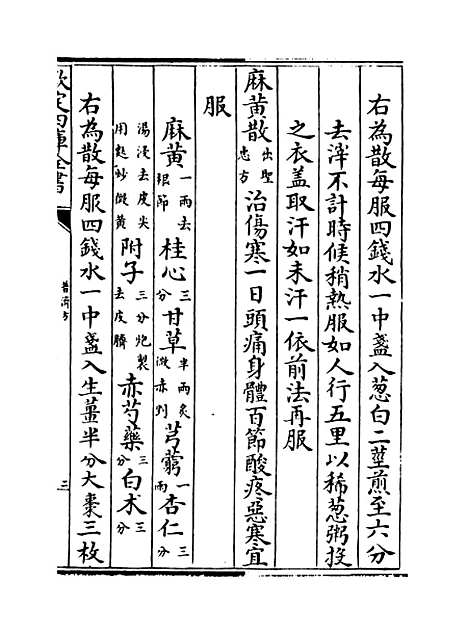 右為散每服四錢水一中盞入葱白二莖煎至六分
去滓不計時候稍熱服如人行五里以稀葱粥投
之衣蓋取汗如未汗一依前法再服
麻黄散出聖惠方治傷寒一日頭痛身體百節酸疼惡寒宜
服
麻黄一兩去根節桂心三分甘草半兩炙微赤剉芎藭一兩杏仁三分
湯浸去皮尖用麩炒微黄附子三分炮製去皮臍赤芍藥三分白术三分
右為散每服四錢水一中盞入生薑半分大棗三枚
欽定四庫全書
普濟方
三